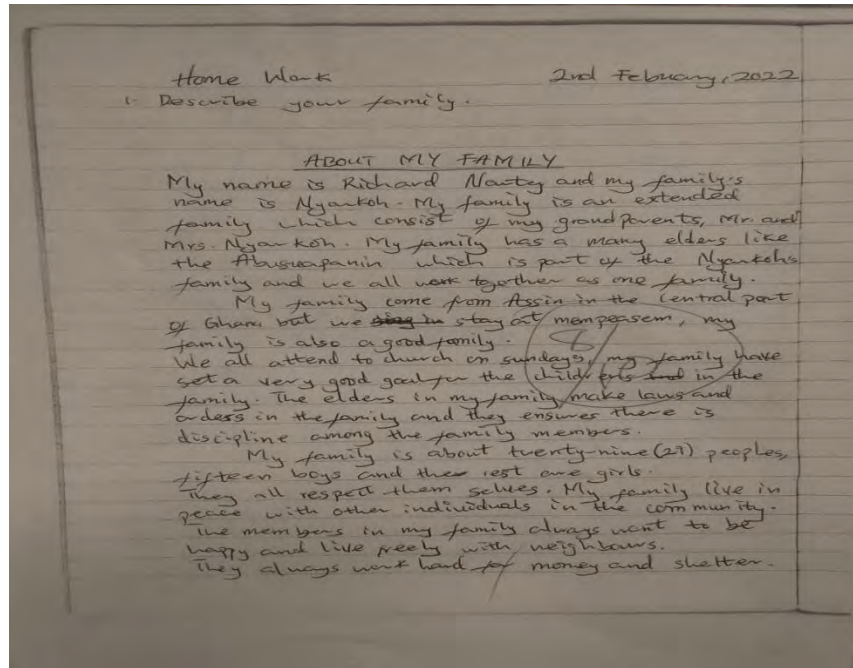 Home Work 2nd February, 2022
1. Describe your family.
ABOUT MY FAMILY
My name is Richard Nartey and my family's
name is Nyankoh. My family is an extended
family which consist of my grandparents, Mr. and
Mrs. Nyankoh. My family has a many elders like
the Abusuapanin which is part of the Nyankohs
family and we all work together as one family.
My family come from Assin in the Central part
of Ghana but we stay at mempeasem, my
family is also a good family.
We all attend to church on sundays, my family have
set a very good goal for the childrens in the
family. The elders in my family make laws and
orders in the family and they ensures there is
discipline among the family members.
My family is about twenty-nine (29) peoples,
fifteen boys and the rest are girls.
They all respect them selves. My family live in
peace with other individuals in the community.
The members in my family always want to be
happy and live freely with neighbours.
They always work hard for money and shelter.